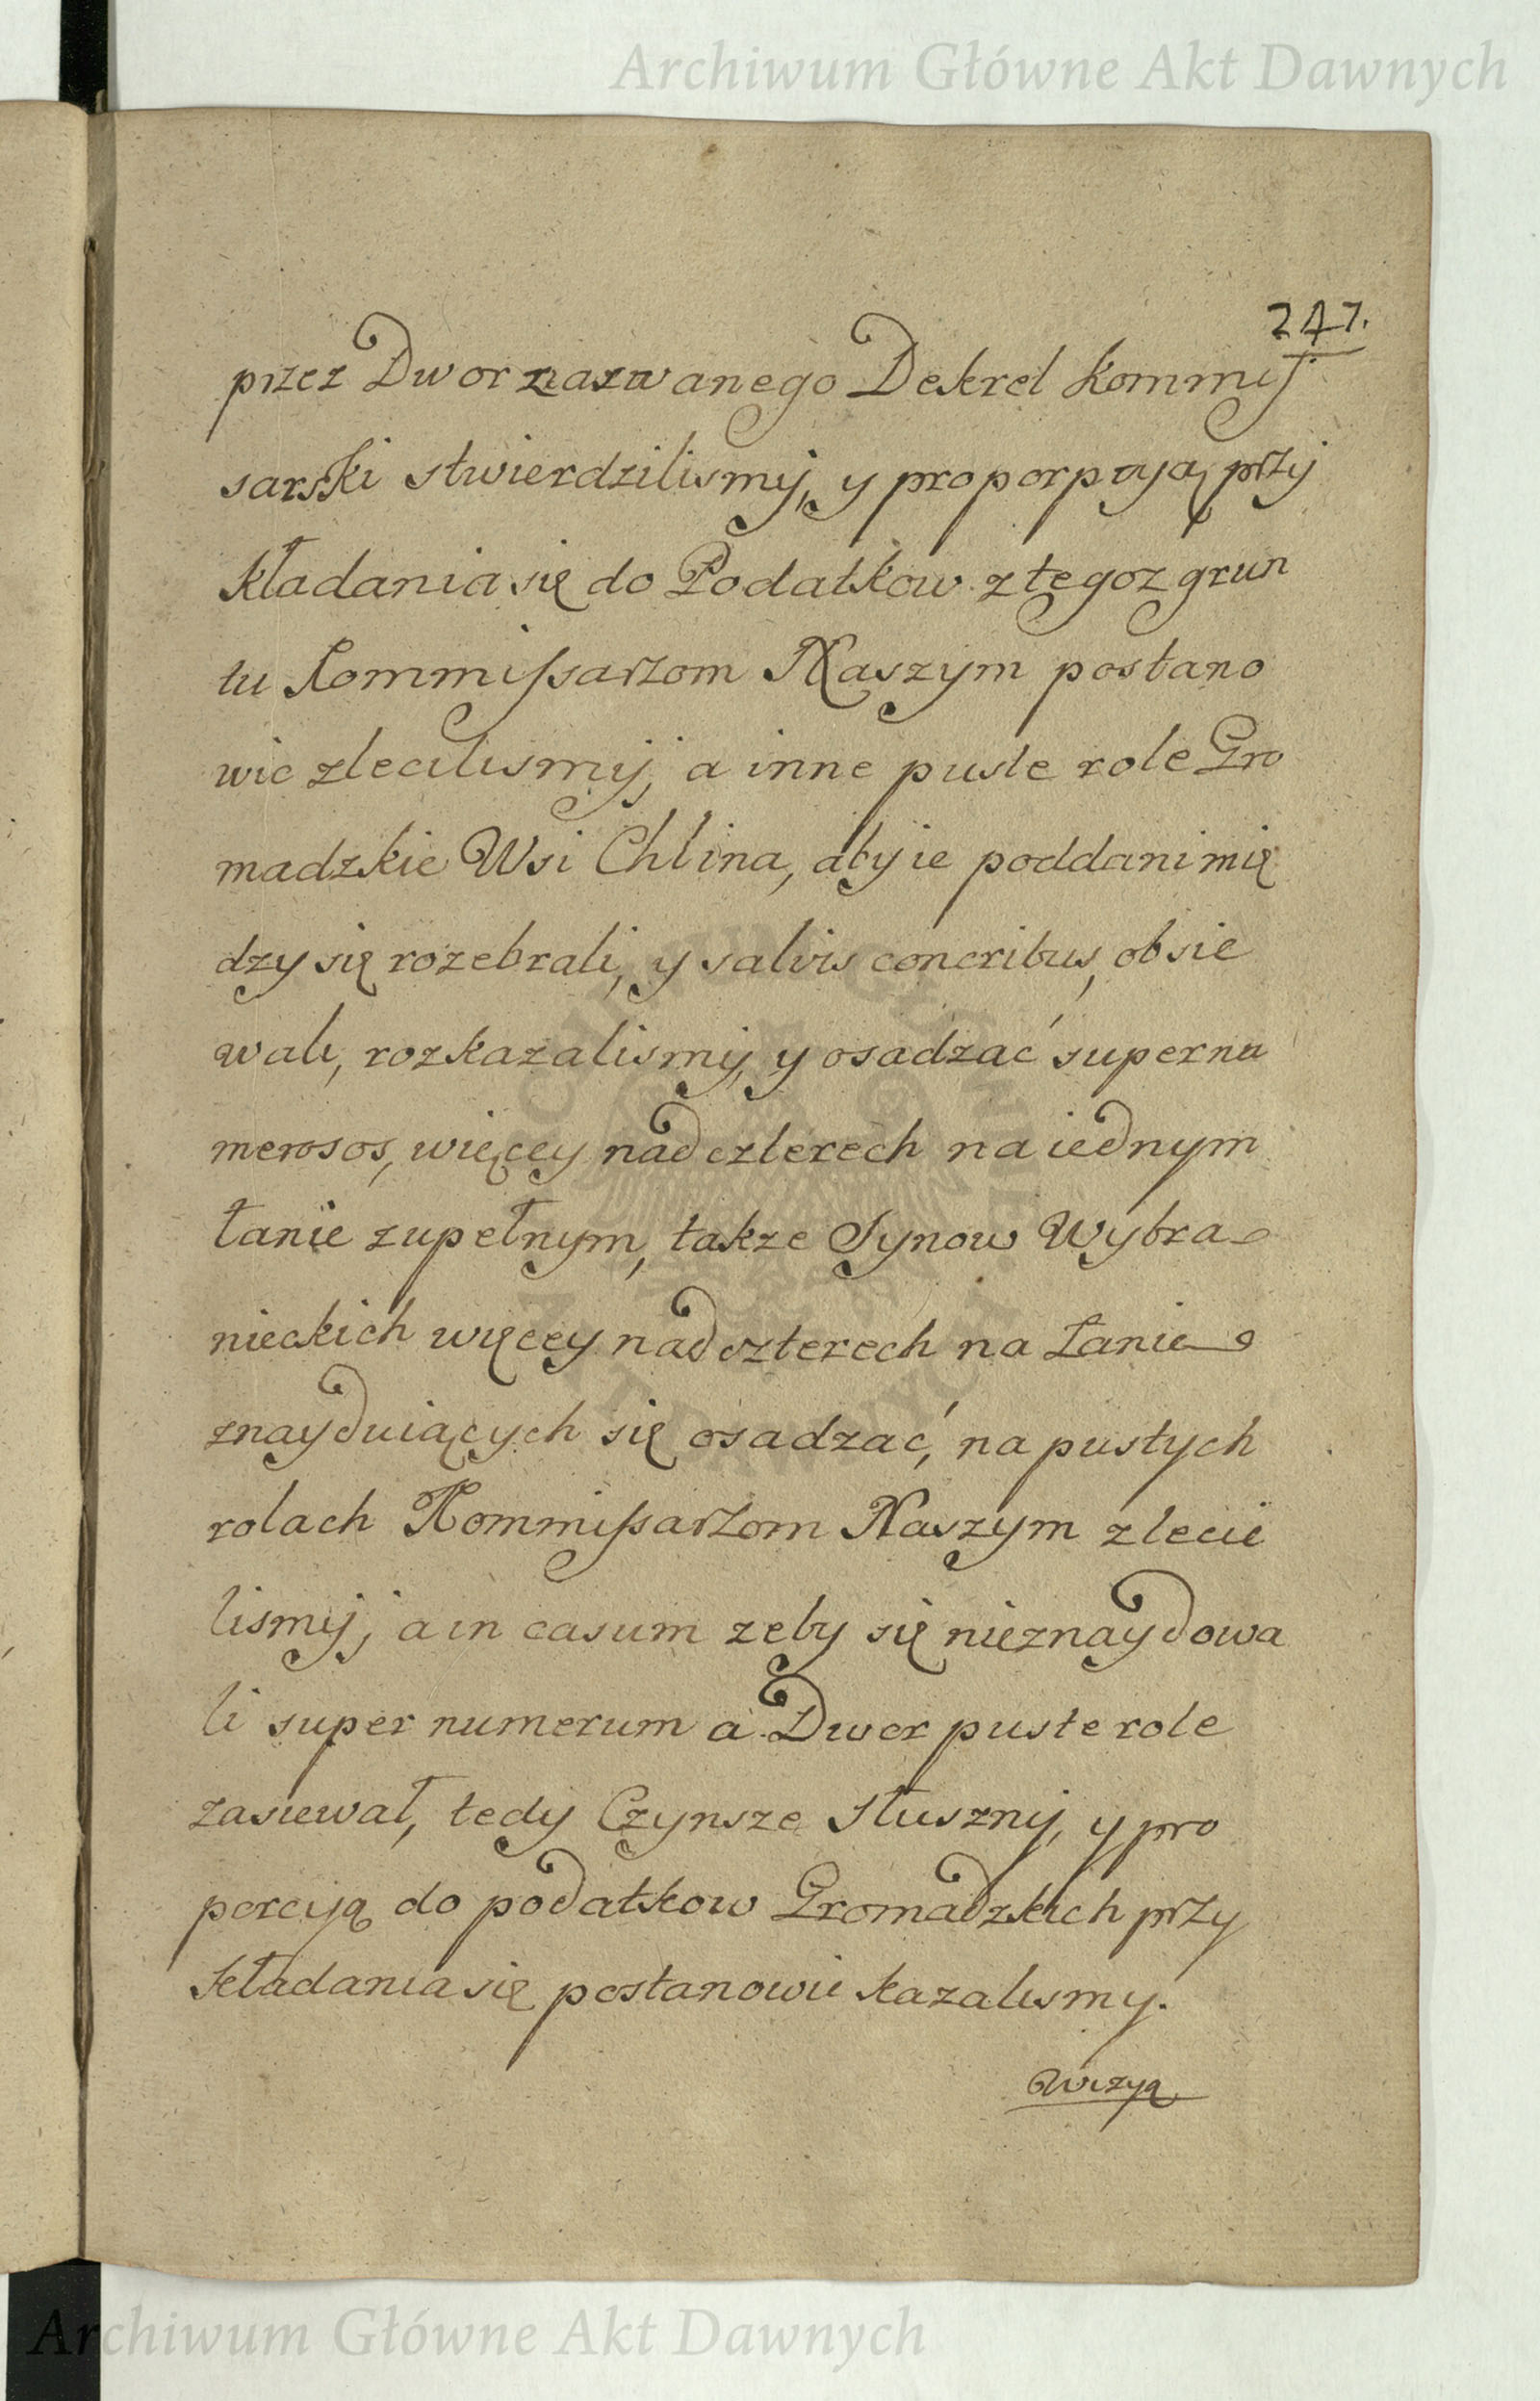 Archiwum Główne Akt Dawnych
247.
przez Dwor nazwanego Dekret Kommis
sarski stwierdzilismy, y proporcyą przy
kładania się do Podatkow z tegoz grun
tu Kommissarzom Naszym postano
wic zlecilismy, a inne puste role Gro
madzkie Wsi Chlina, aby ie poddani mię
dzy się rozebrali, y salvis concribus, obsie
wali, rozkazalismy, y osadzać supernu
merosos, więcey nad czterech na iednym
łanie zupełnym, takze Synow Wybra
nieckich więcey nad czterech na Łanie
znayduiących się osadzać, na pustych
rolach Kommissarzom Naszym zleci
lismy, a in casum zeby się nieznaydowa
li super numerum a Dwor puste role
zasiewał, tedy Czynsze słuszny, y pro
porcyą do podatkow Gromadzkich przy
kładania się postanowic kazalismy.
Archiwum Główne Akt Dawnych